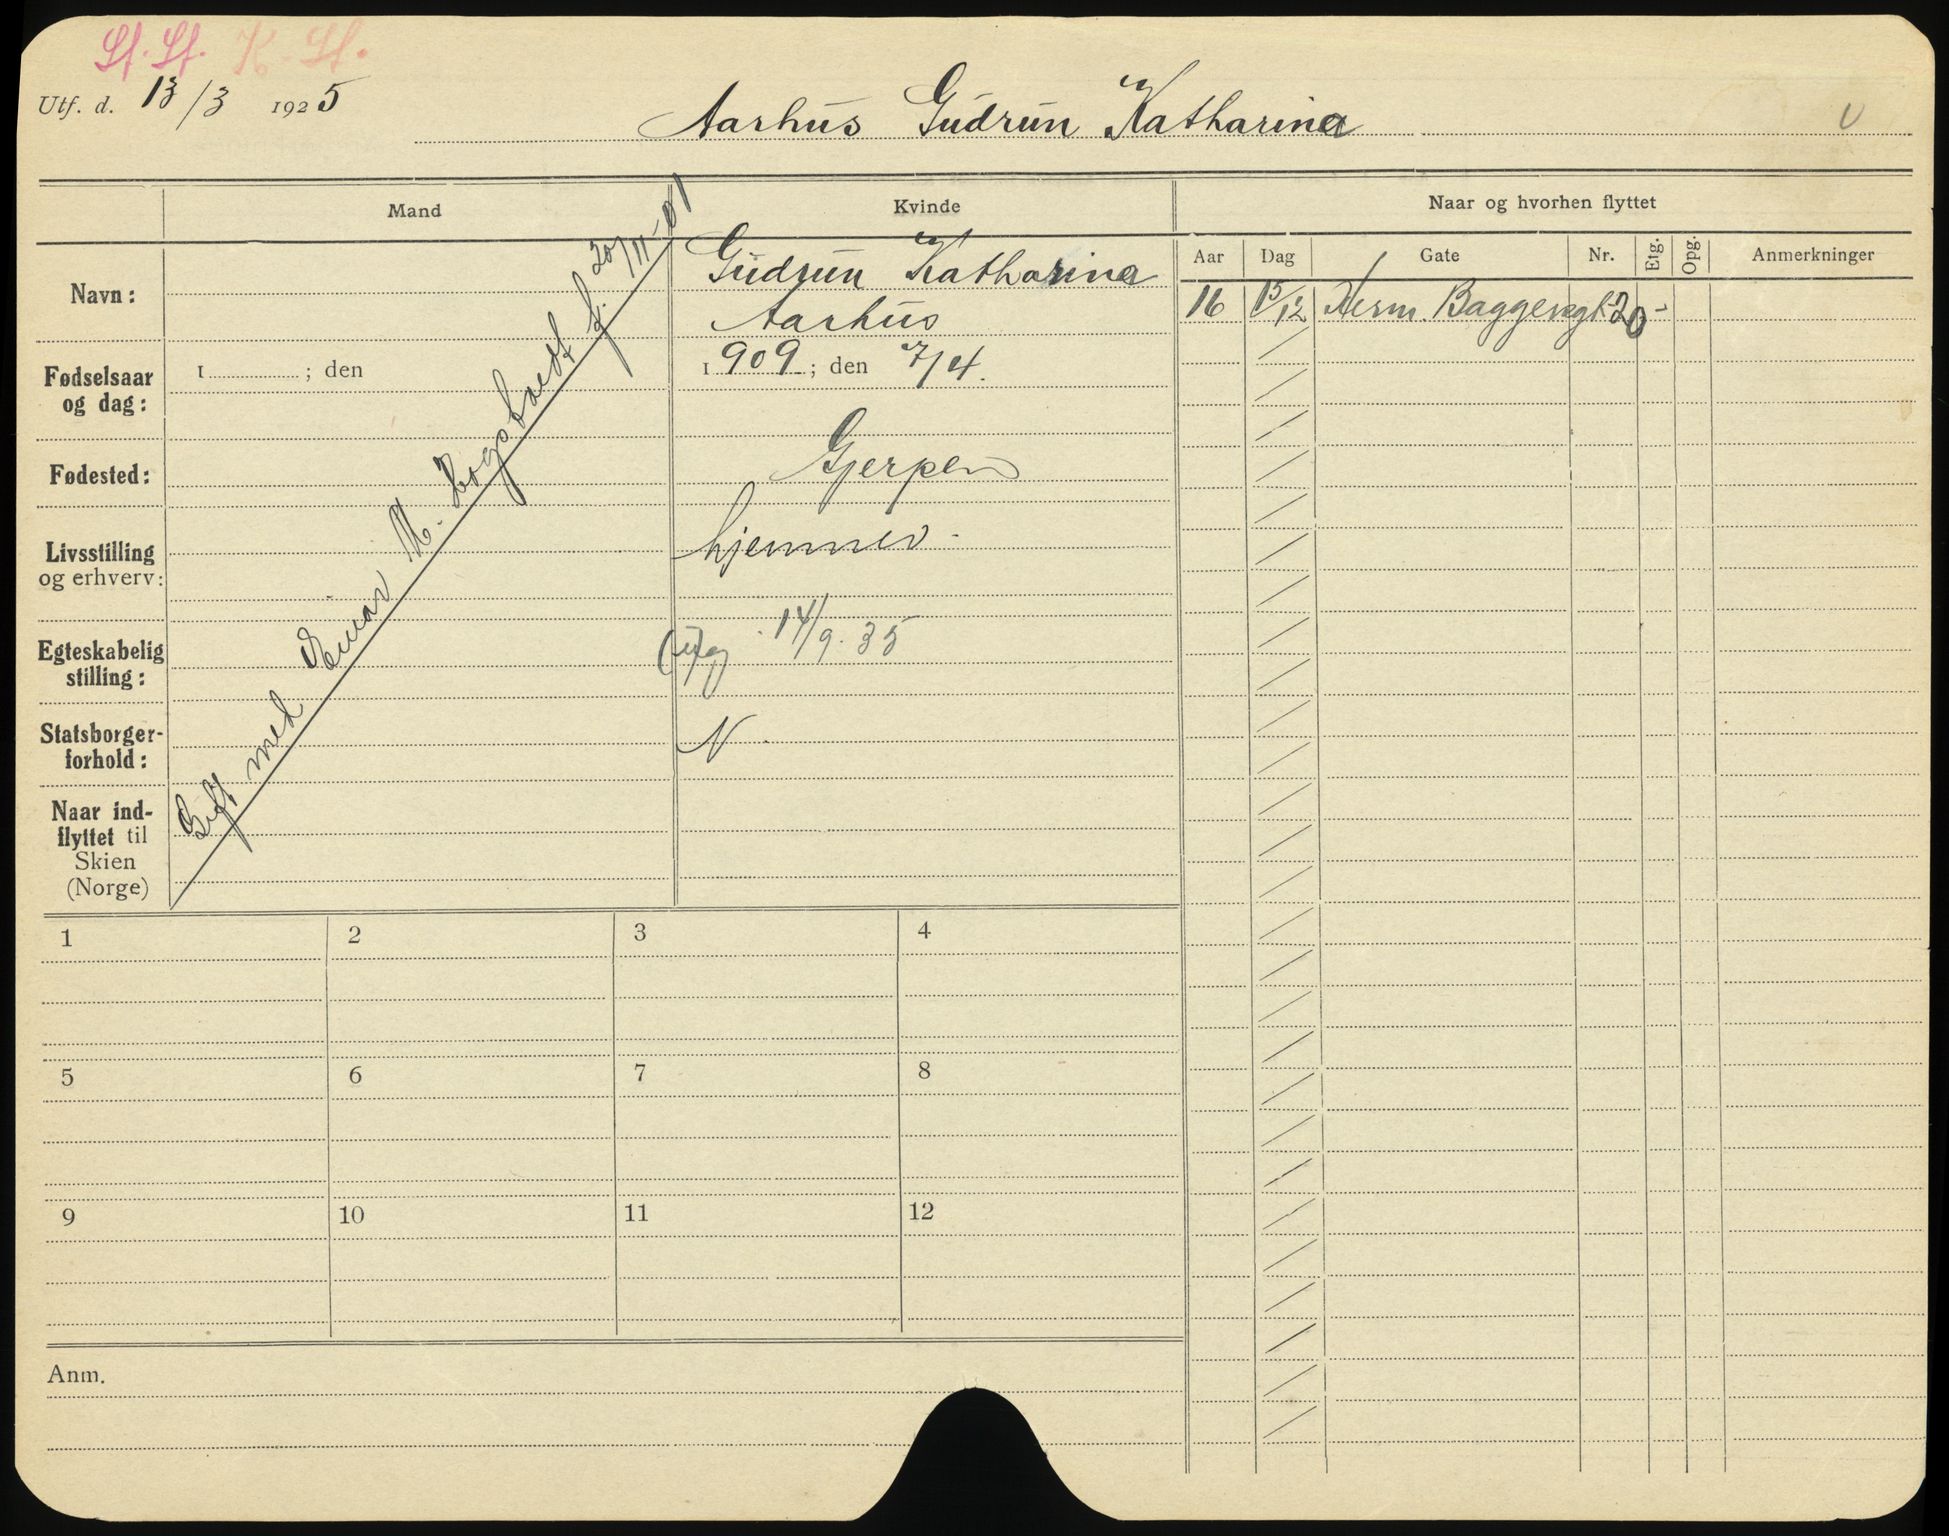 St. St. K. St.
Utf. d. 13/3 1925
Aarhus Gudrun Katharina
U
Mand
Kvinde
Naar og hvorhen flyttet
Aar Dag Gate Nr. Etg. Opg. Anmerkninger
Navn:
Gudrun Katharina
Aarhus
16 15/12 Herm. Baggesgt 20 -
Fødselsaar
og dag:
1 ; den
1909 ; den 7/4.
Fødested:
Gjerpen
Livsstilling
og erhverv:
hjemmev.
Egteskabelig
stilling:
(u)g 14/9. 35
Statsborger-
forhold:
N.
Naar ind-
flyttet til
Skien
(Norge)
Gift med Einar M. f. 20/11-01
1 2 3 4
5 6 7 8
9 10 11 12
Anm.